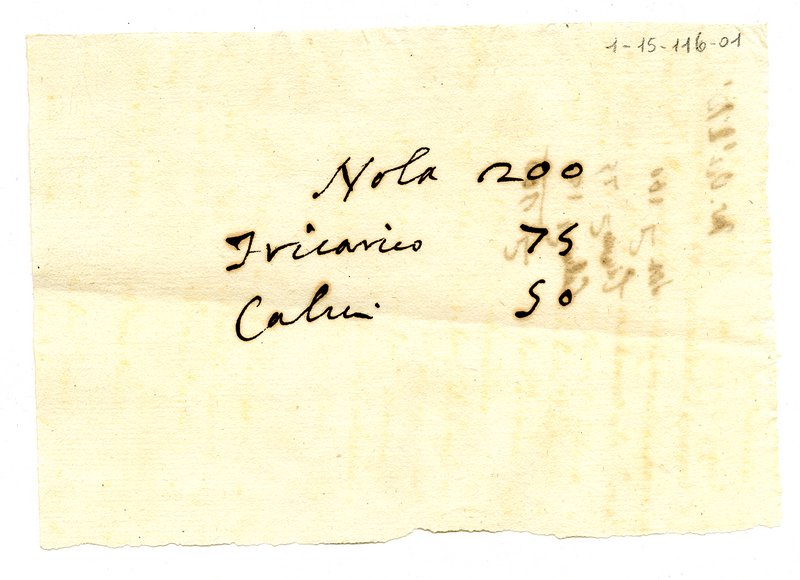 1-15-116-01
Nola 200
Tricarico 75
Calvi 50